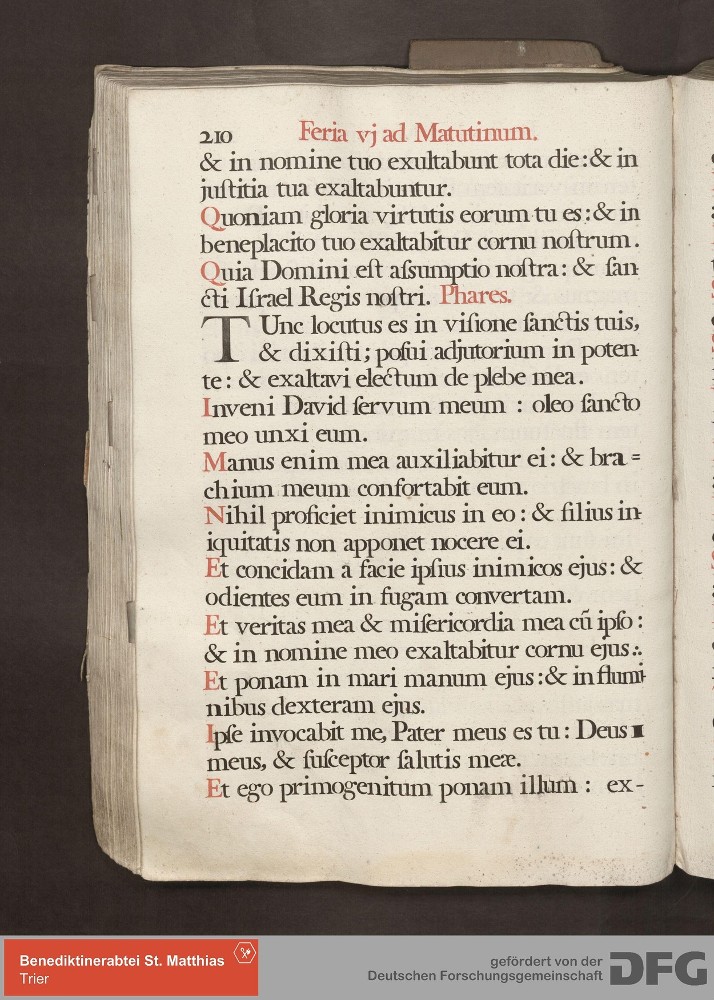 210 Feria vj ad Matutinum.
& in nomine tuo exultabunt tota die : & in
juſtitia tua exaltabuntur.
Quoniam gloria virtutis eorum tu es : & in
beneplacito tuo exaltabitur cornu noſtrum.
Quia Domini eſt aſsumptio noſtra : & ſan-
cti Iſrael Regis noſtri. Phares.
TUnc locutus es in viſione ſanctis tuis,
& dixiſti ; poſui adjutorium in poten-
te : & exaltavi electum de plebe mea.
Inveni David ſervum meum : oleo ſancto
meo unxi eum.
Manus enim mea auxiliabitur ei : & bra =
chium meum confortabit eum.
Nihil proficiet inimicus in eo : & filius in-
iquitatis non apponet nocere ei.
Et concidam a facie ipſius inimicos ejus : &
odientes eum in fugam convertam.
Et veritas mea & miſericordia mea cũ ipſo :
& in nomine meo exaltabitur cornu ejus ∴
Et ponam in mari manum ejus : & in flumi-
nibus dexteram ejus.
Ipſe invocabit me, Pater meus es tu : Deus
meus, & ſuſceptor ſalutis meæ.
Et ego primogenitum ponam illum : ex-
Benediktinerabtei St. Matthias
Trier
gefördert von der
Deutschen Forschungsgemeinschaft
DFG